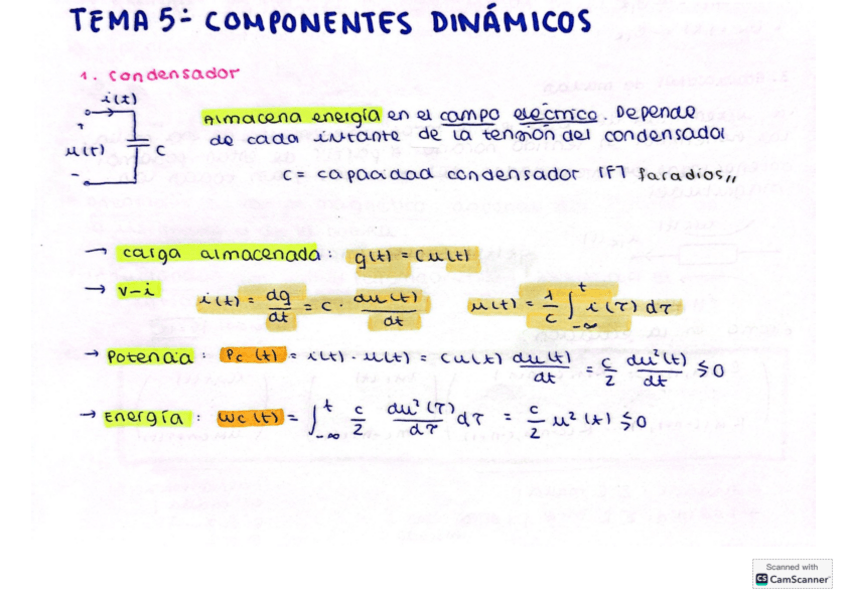 TEMA 5:- COMPONENTES DINÁMICOS
1. Condensador
i(t)
+
u(t)
-
C
Almacena energía en el campo eléctrico. Depende
de cada intante de la tensión del condensador
C = capacidad condensador [F] faradios,,
→ carga almacenada: q(t) = Cu(t)
→ v-i i(t) = dq/dt = C · du(t)/dt u(t) = 1/C ∫_{-∞}^{t} i(τ) dτ
→ Potencia: Pc(t) = i(t) · u(t) = Cu(t) du(t)/dt = C/2 du²(t)/dt ≶ 0
→ Energía: Wc(t) = ∫_{-∞}^{t} C/2 du²(τ)/dτ dτ = C/2 u²(t) ≶ 0
Scanned with
CS CamScanner